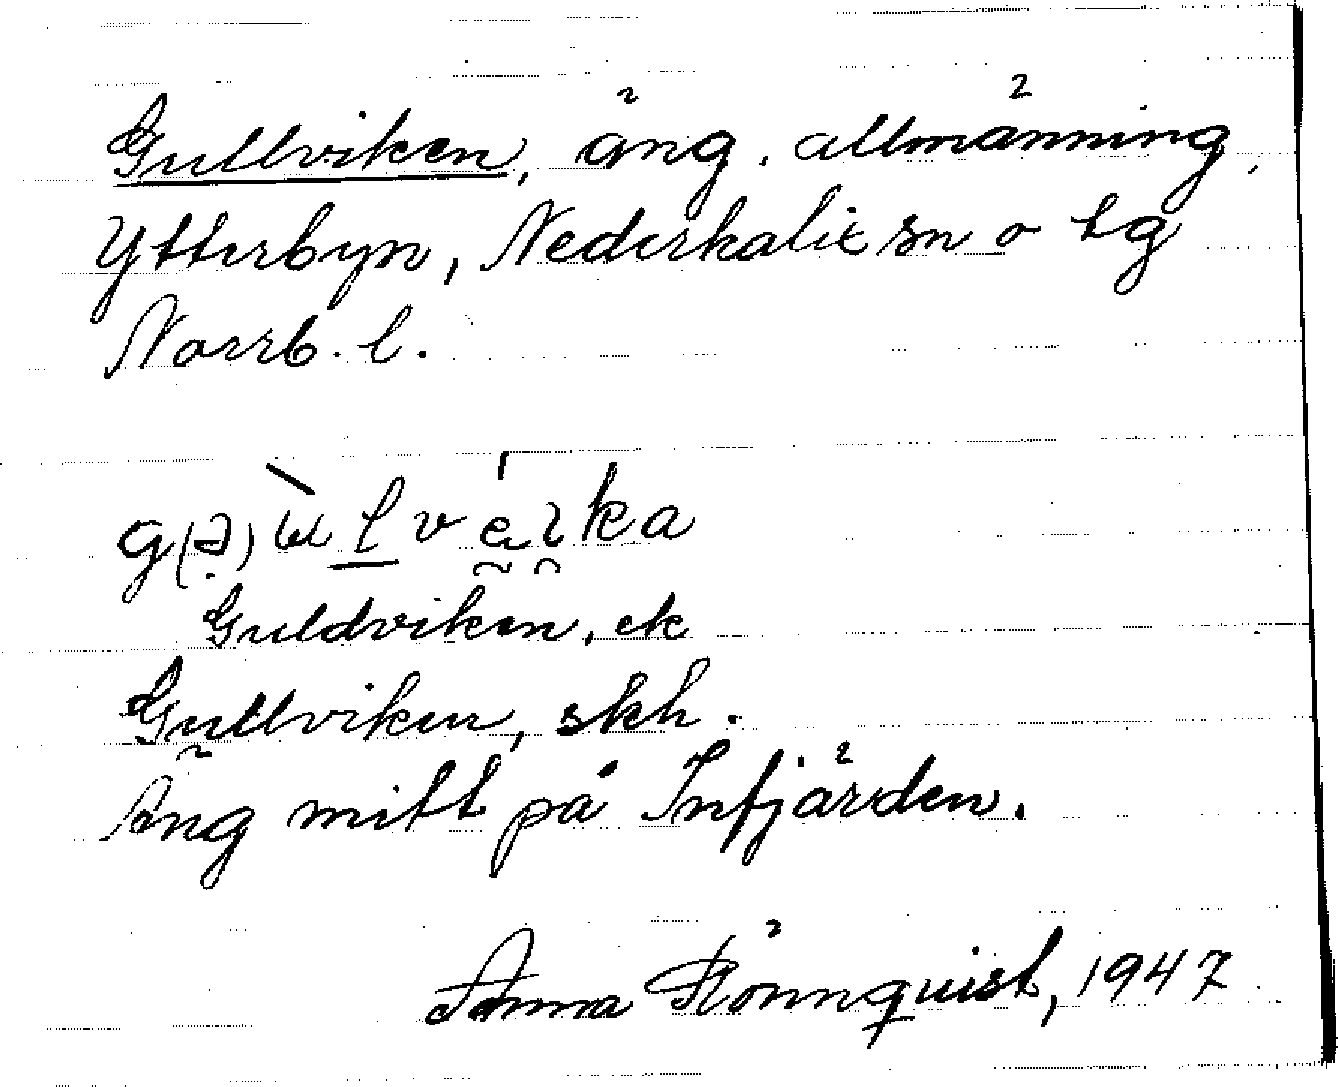 Gullviken, äng, allmänning,
Ytterbyn, Nederkalix sn o tg
Norrb. l.
Guldviken, ek
Gullviken, skh.
Äng mitt på Infjärden.
Anna Rönnquist, 1947